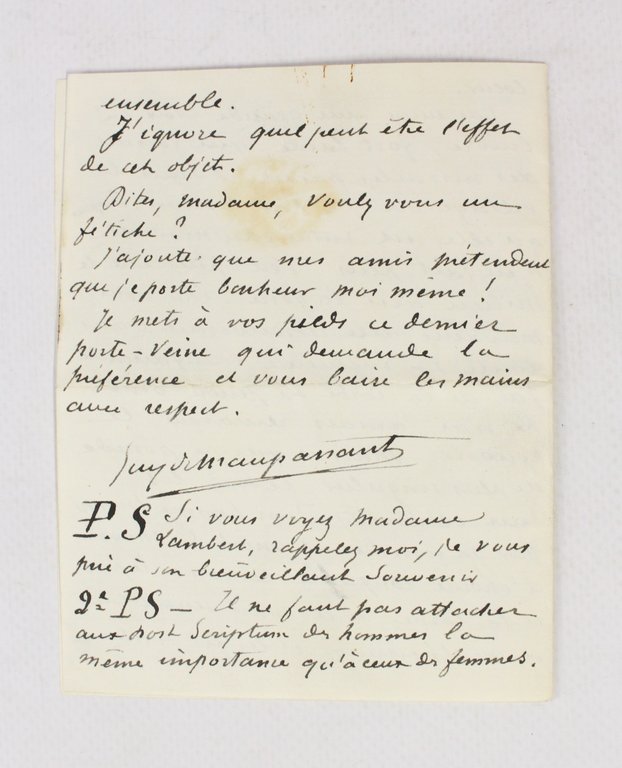 ensemble.
J'ignore quel peut être l'effet
de cet objet.
Dites, madame, voulez vous un
fétiche ?
J'ajoute que mes amis prétendent
que je porte bonheur moi même !
Je mets à vos pieds ce dernier
porte-veine qui demande la
préférence et vous baise les mains
avec respect.
Guy de Maupassant
P.S Si vous voyez Madame
Lambert, rappelez moi, je vous
prie à son bienveillant souvenir
2e PS — Il ne faut pas attacher
aux Post Scriptum des hommes la
même importance qu'à ceux des femmes.